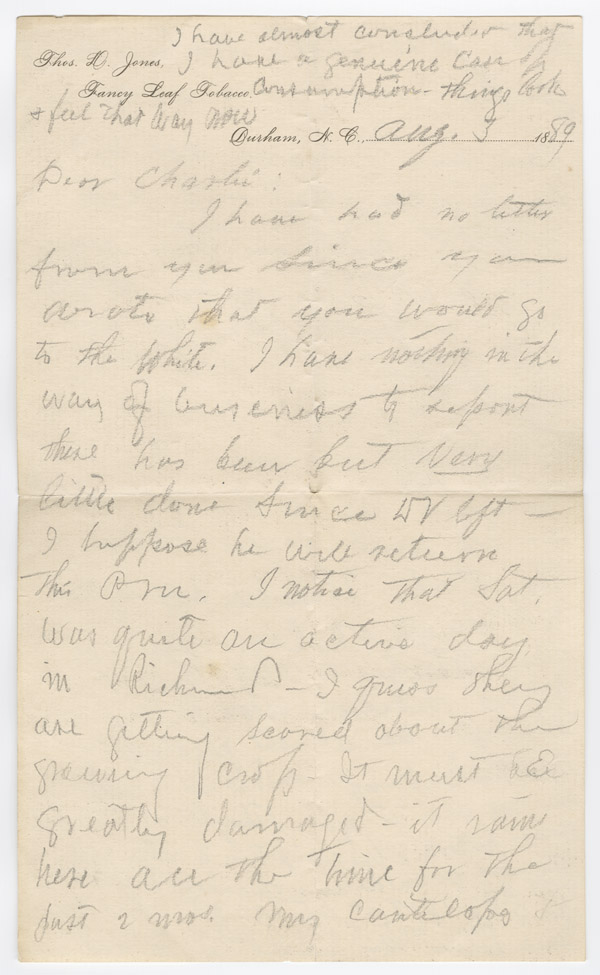 I have almost concluded that
Thos. D. Jones, I have a genuine case of
Fancy Leaf Tobacco, Consumption - things look
& feel that way now
Durham, N. C., Aug. 5 1889
Dear Charlie:
I have had no letter
from you since you
wrote that you would go
to the White. I have nothing in the
way of business to report
there has been but very
little done since WV left -
I suppose he will return
this P.M. I notice that Sat.
was quite an active day
in Richmond - I guess they
are getting scared about the
growing crop - It must be
greatly damaged - it rains
here all the time for the
past 2 mos. My cantelopes